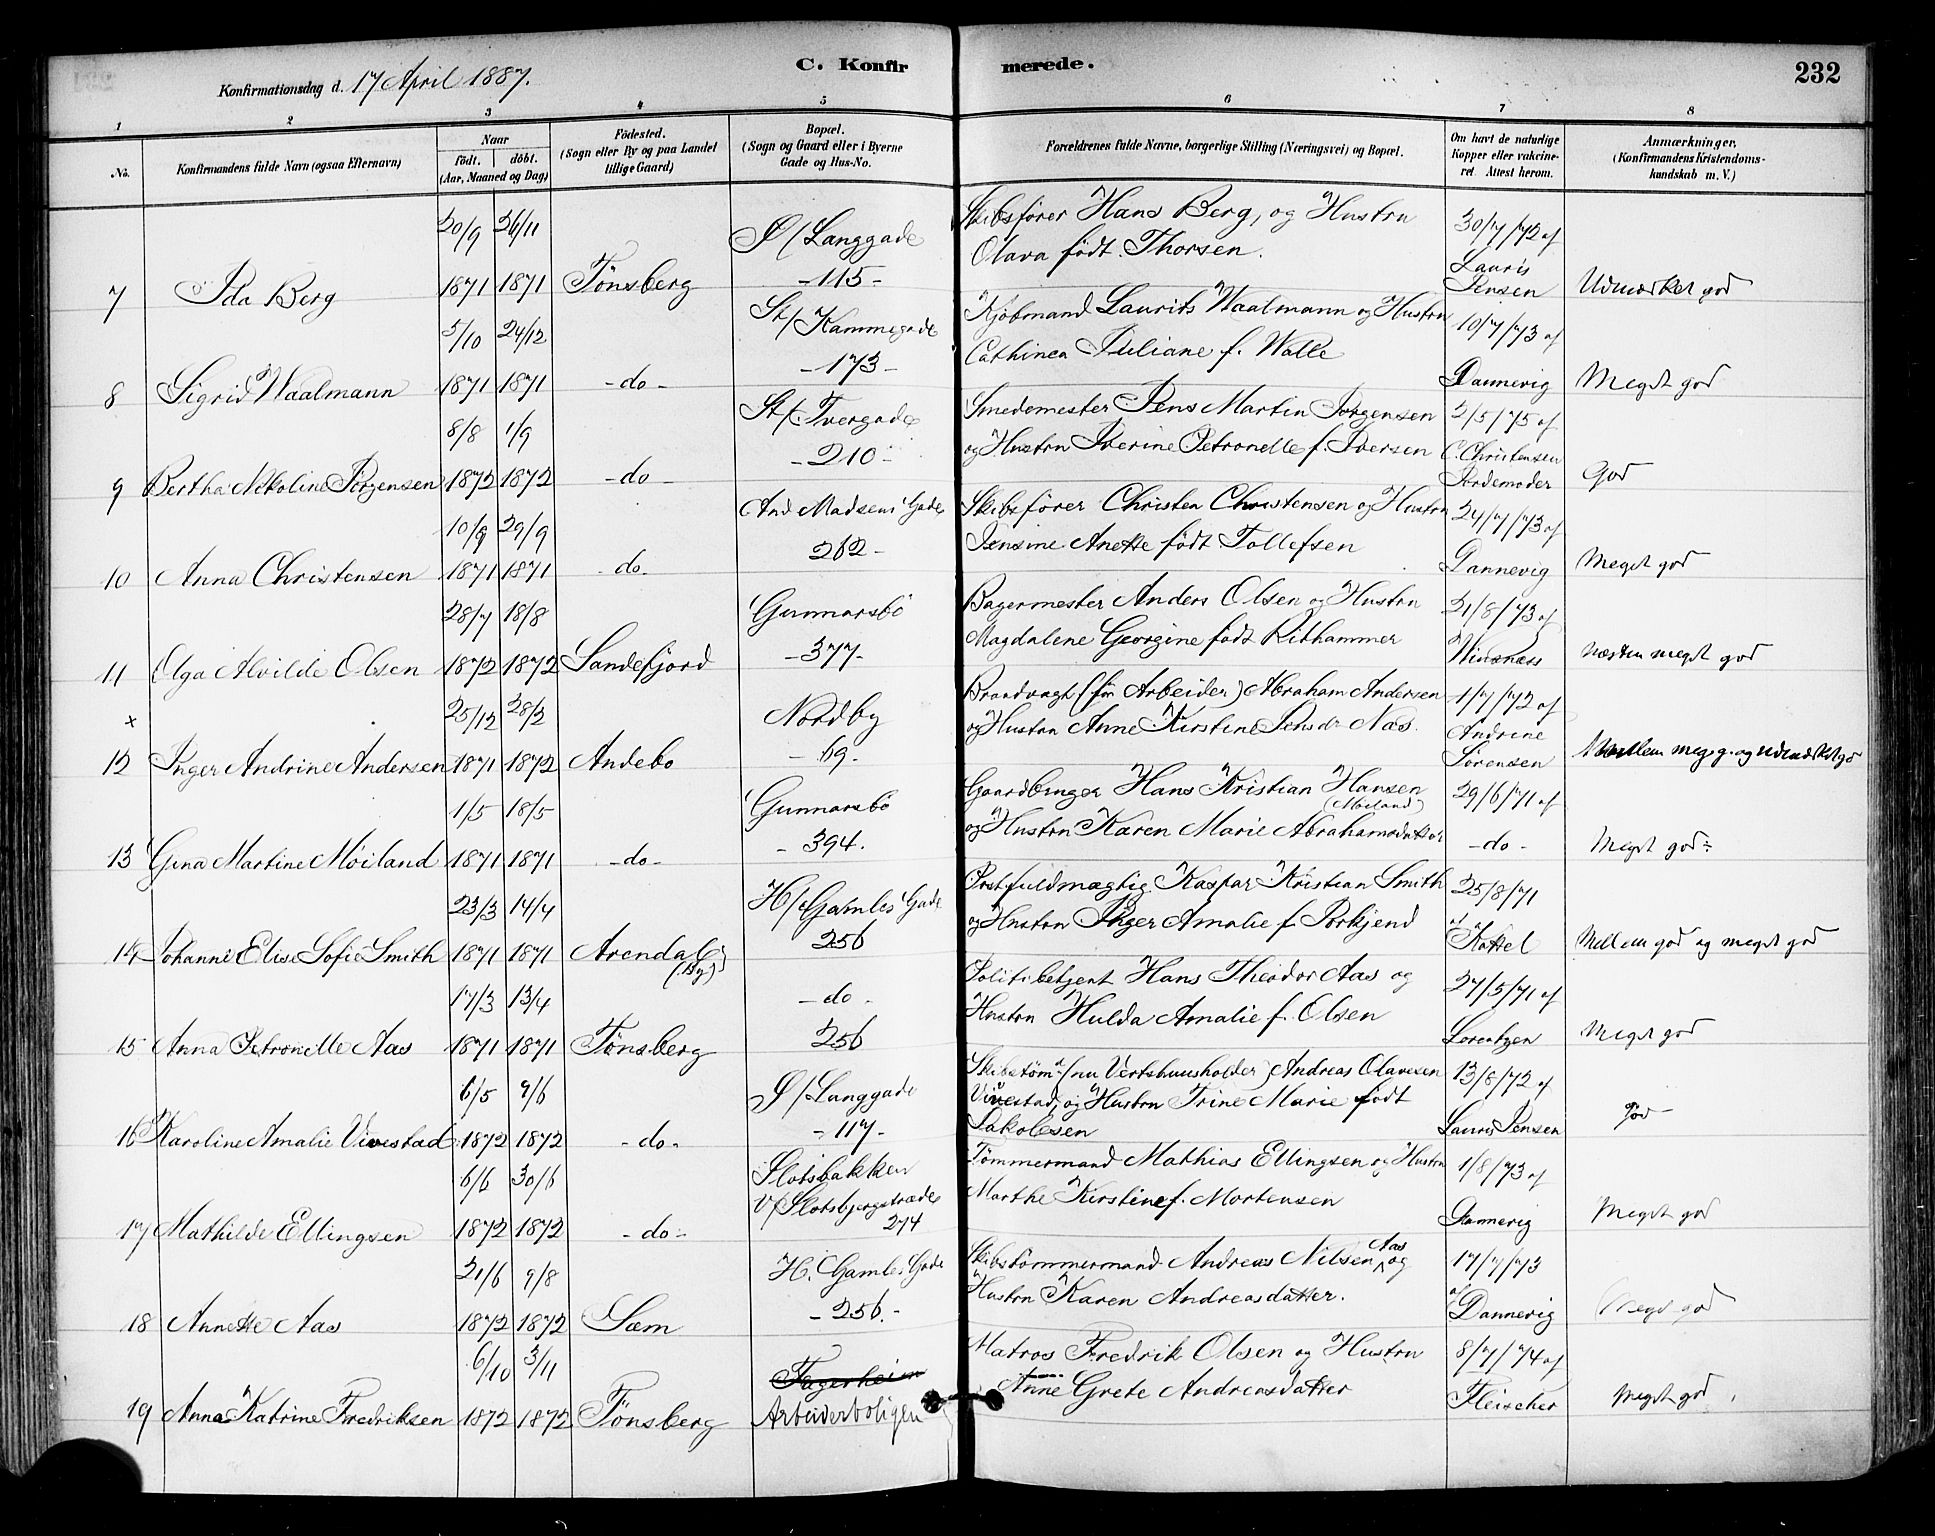 Konfirmationsdag d. 17 April 1887.
C. Konfirmerede.
232
1 2 3 4 5 6 7 8
No. Konfirmandens fulde Navn (ogsaa Efternavn) Naar født. døbt. (Aar, Maaned og Dag) Fødested. (Sogn eller By og paa Landet tillige Gaard) Bopæl. (Sogn og Gaard eller i Byerne Gade og Hus-No. Forældrenes fulde Navne, borgerlige Stilling (Næringsvei) og Bopæl. Om havt de naturlige Kopper eller vakcineret. Attest herom. Anmærkninger. (Konfirmandens Kristendomskundskab m. V.)
20/9 26/11 Ø/Langgade Skibsfører Hans Berg, og Hustru 30/7/72 af
Olava født Thorsen. Lauris
7 Ida Berg 1871 1871 Tønsberg -115- Jensen Udmærket god
5/10 24/12 St/Kammegade Kjøbmand Laurits Waalmann og Hustru 10/7/73 af
-173- Cathinca Juliane f. Walle
8 Sigrid Waalmann 1871 1871 -do- Dannevig Meget god
8/8 1/9 St/Tvergade Smedemester Jens Martin Jørgensen 2/5/75 af
-210- og Hustru Iverine Petronelle f. Iversen C. Christensen
9 Bertha Nikoline Jørgensen 1872 1872 -do- Jordemoder God
10/8 29/9 And. Madsens Gade Skibsfører Christen Christensen og Hustru 24/7/73 af
262- Jensine Anette født Tollefsen
10 Anna Christensen 1871 1871 -do- Dannevig Meget god
28/7 18/8 Gunnarsbø Bagermester Anders Olsen og Hustru 21/8/73 af
Magdalene Georgine født Rithammer
11 Olga Alvilde Olsen 1872 1872 Sandefjord -377- Winsnæss næsten meget god
x 25/12 28/2 Nordby Brandvagt (før Arbeider) Abraham Andersen 1/7/72 af
-69- og Hustru Anne Kirstine Jensdr Næs. Andrine
12 Inger Andrine Andersen 1871 1872 Andebo Sørensen Mellem meg g. og udmærket god
1/5 18/5 Gunnarsbø Gaardbruger Hans Kristian Hansen 29/6/71 af
(Møiland)
-394. og Hustru Karen Marie Abrahamsdatter
13 Gina Martine Møiland 1871 1871 -do- -do- Meget god÷
23/3 14/4 H/Gamles Gade Postfuldmægtig Kaspar Kristian Smith 25/8/71
256 og Hustru Inger Amalie f. af
14 Johanne Elise Sofie Smith 1871 1871 Arendal (By) Kattel Mellem god og meget god
17/3 13/4 -do- Politibetjent Hans Theodor Aas og 27/5/71 af
Hustru Hulda Amalie f. Olsen
15 Anna Petronelle Aas 1871 1871 Tønsberg 256 Lorentzen Meget god
6/5 9/6 Ø/Langgade Skibstøm. (nu Vertshuusholder) Andreas Olavesen 13/8/72 af
Vivestad, og Hustru Trine Marie født
16 Karoline Amalie Vivestad 1872 1872 -do- -117- Jakobsen Lauris Jensen god-
6/6 30/6 Slotsbakken Tømmermand Mathias Ellingsen og Hustru 1/8/73 af
v/Slotsbjergstræde Marthe Kirstine f. Mortensen
17 Mathilde Ellingsen 1872 1872 -do- 274 Dannevig Meget god
21/6 9/8 H. Gamles Gade Skibstømmermand Andreas Nilsen Aas og 17/7/73
Hustru Karen Andreasdatter. af
18 Annette Aas 1872 1872 Sæm -256.- Dannevig Meget god
6/10 3/11 Fagerheim Matros Fredrik Olsen og Hustru 8/7/74 af
Anne Grete Andreasdatter
19 Anna Katrine Fredriksen 1872 1872 Tønsberg Arbeiderboligen Fleischer Meget god